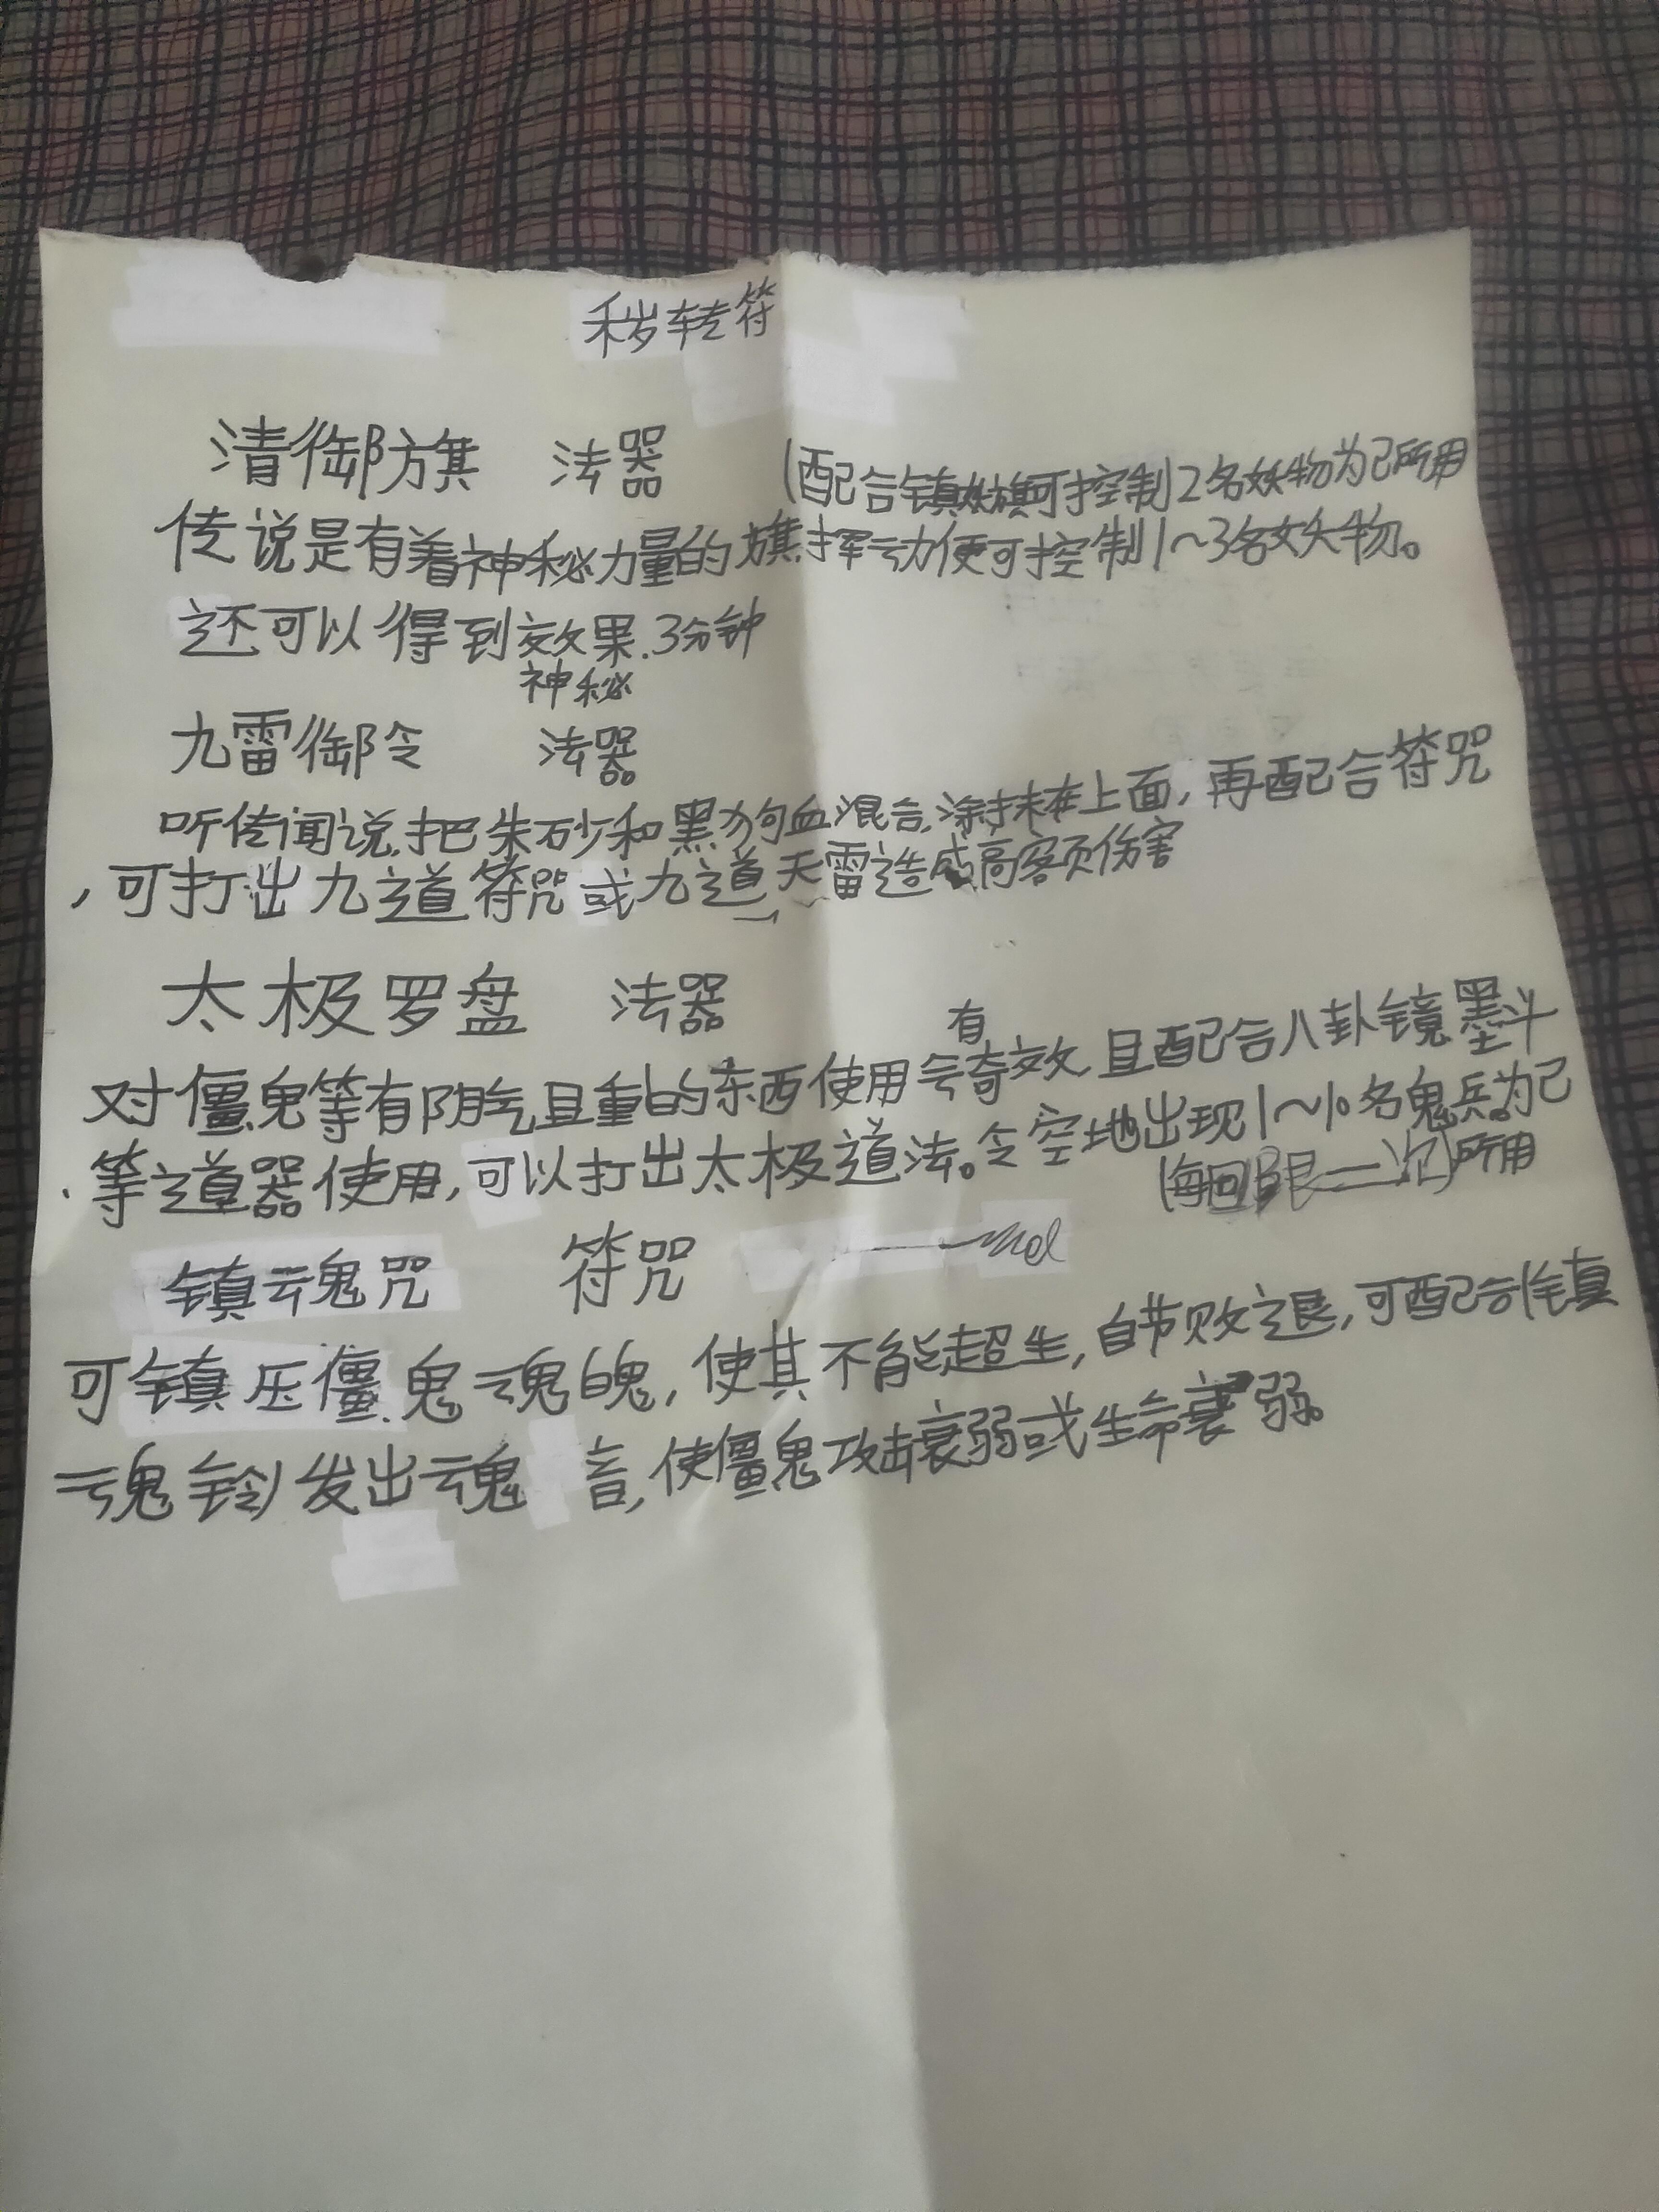 秽转符
清御旗 法器 (配合镇妖旗可控制2名妖物为己所用
传说是有着神秘力量的旗,挥动便可控制1~3名妖物。
还可以得到效果.3分钟
神秘
九雷御令 法器
听传闻说,把朱砂和黑狗血混合,涂抹在上面,再配合符咒
,可打出九道符咒或九道天雷造成高额伤害
太极罗盘 法器
有
对僵鬼等有阴气且重的东西使用会奇效,且配合八卦镜墨斗
、等道器使用,可以打出太极道法。令空地出现1~10名鬼兵。为己
(每回限一次)所用
镇魂咒 符咒
可镇压僵鬼魂魄,使其不能超生,自节败退,可配合镇
魂铃发出魂音,使僵鬼攻击衰弱或生命衰弱。